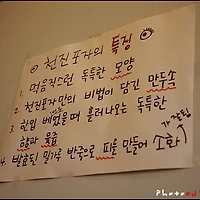 천진포자의 특징
1 먹음직스런 독특한 모양
2 천진포자만의 비법이 담긴 만두소
3 한입 베었을때 흘러나오는 독특한
향과 육즙
4. 발효된 밀가루 반죽으로 피를 만들어 소화
가 잘됨
Photo